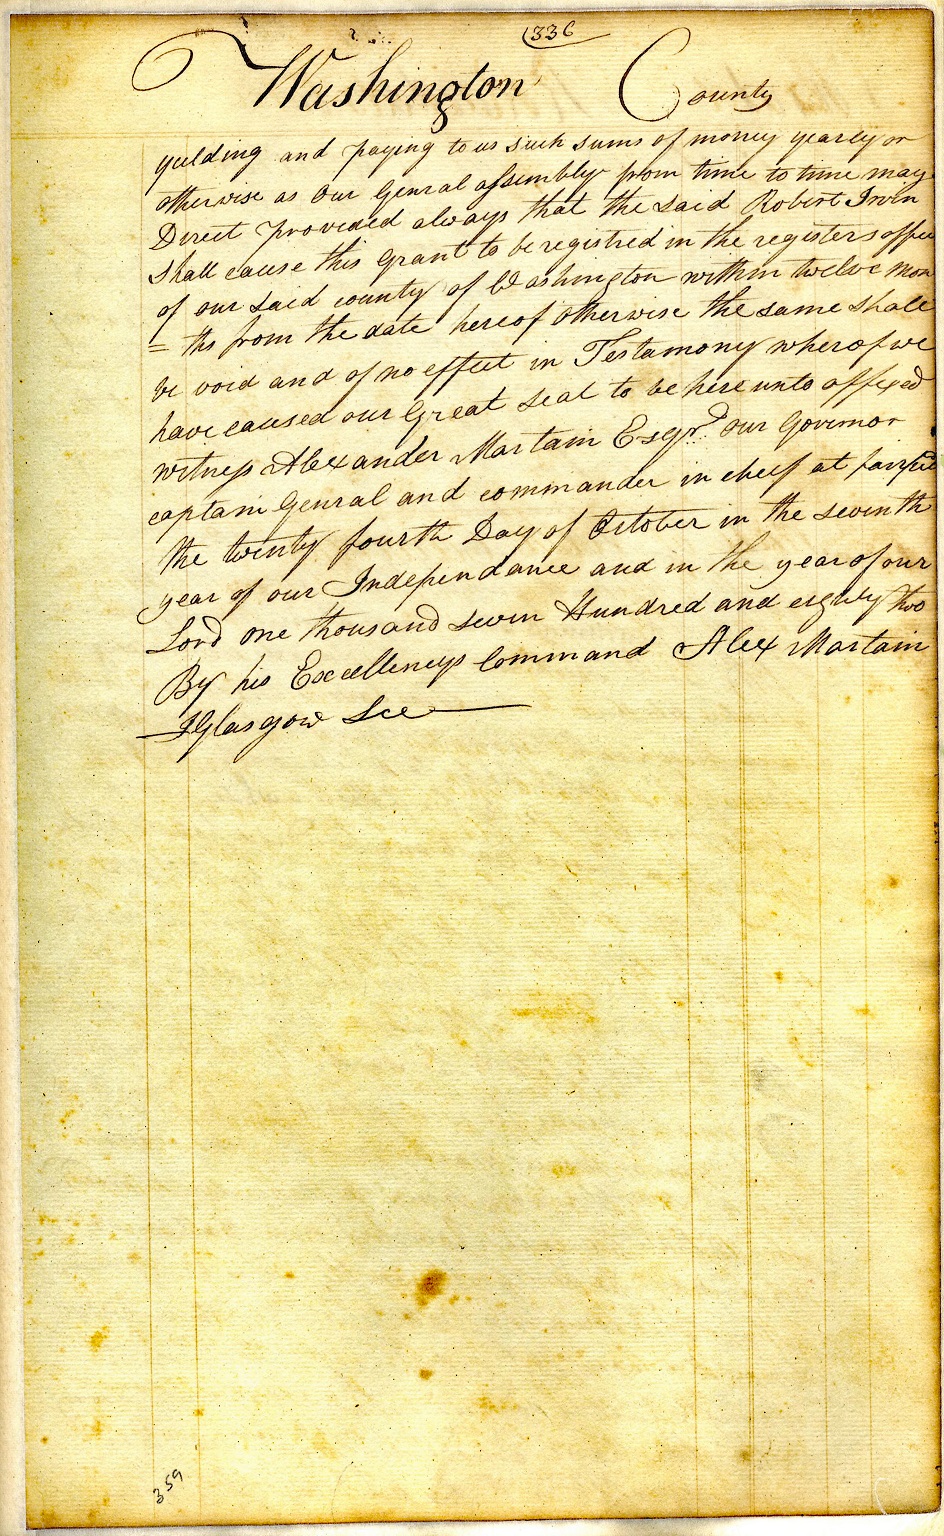 336
Washington County
yeilding and paying to us such sums of money yearly or
otherwise as our Genral assembly from time to time may
Direct provided always that the said Robert Irvin
shall cause this Grant to be registred in the registers office
of our said county of Washington within twelve mon
= ths from the date hereof otherwise the same shall
be void and of no effect in Testamony wherof we
have caused our Great seal to be here unto affixed
witness Alexander Martain Esqr. our Governor
captain Genral and commander in cheif at fairfield
the twenty fourth Day of October in the seventh
year of our Independance and in the year of our
Lord one thousand seven Hundred and eighty two
By his Excellencys Command Alex Martain
J Glasgow Sec
359